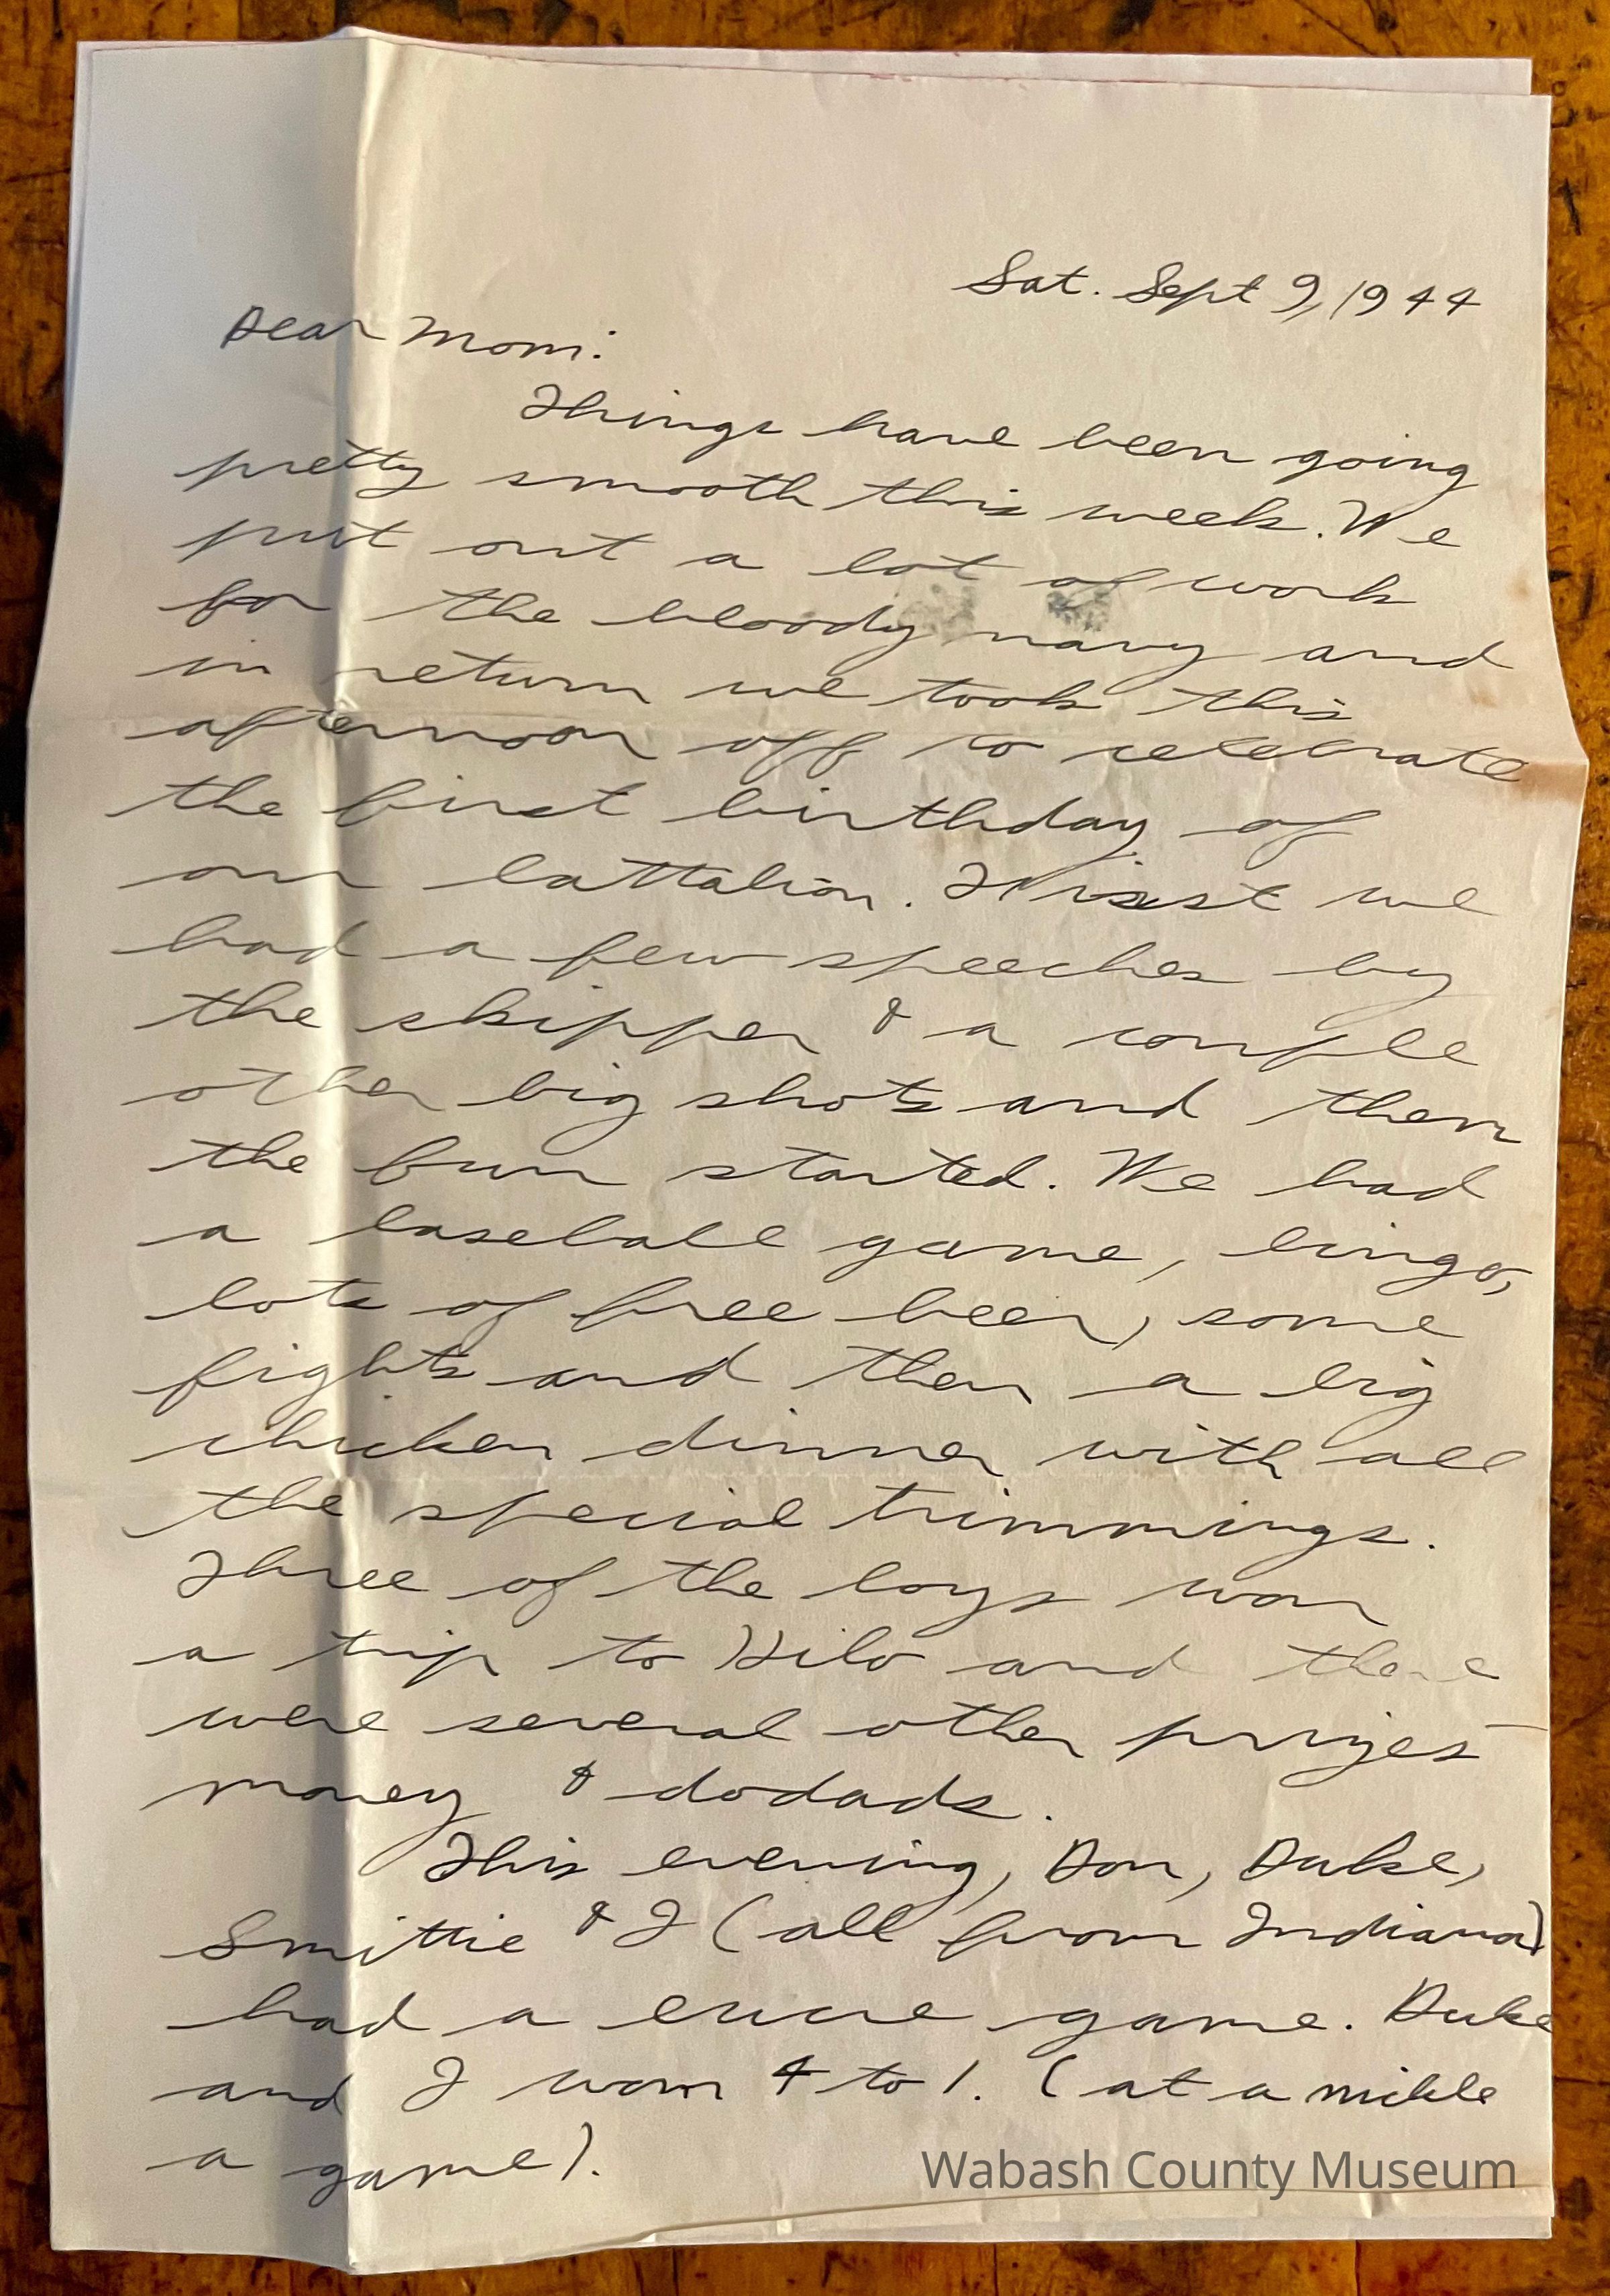 Sat. Sept 9, 1944
Dear Mom:
Things have been going
pretty smooth this week. We
put out a lot of work
for the bloody navy and
in return we took this
afternoon off to celebrate
the first birthday of
our battalion. First we
had a few speeches by
the skipper & a couple
other big shots and then
the fun started. We had
a baseball game, bingo,
lots of free beer, some
fights and then a big
chicken dinner with all
the special trimmings.
Three of the boys won
a trip to Hilo and there
were several other prizes—
money & dodads.
This evening, Don, Duke,
Smittie & I (all from Indiana)
had a eucre game. Duke
and I won 4 to 1. (at a nickle
a game).
Wabash County Museum